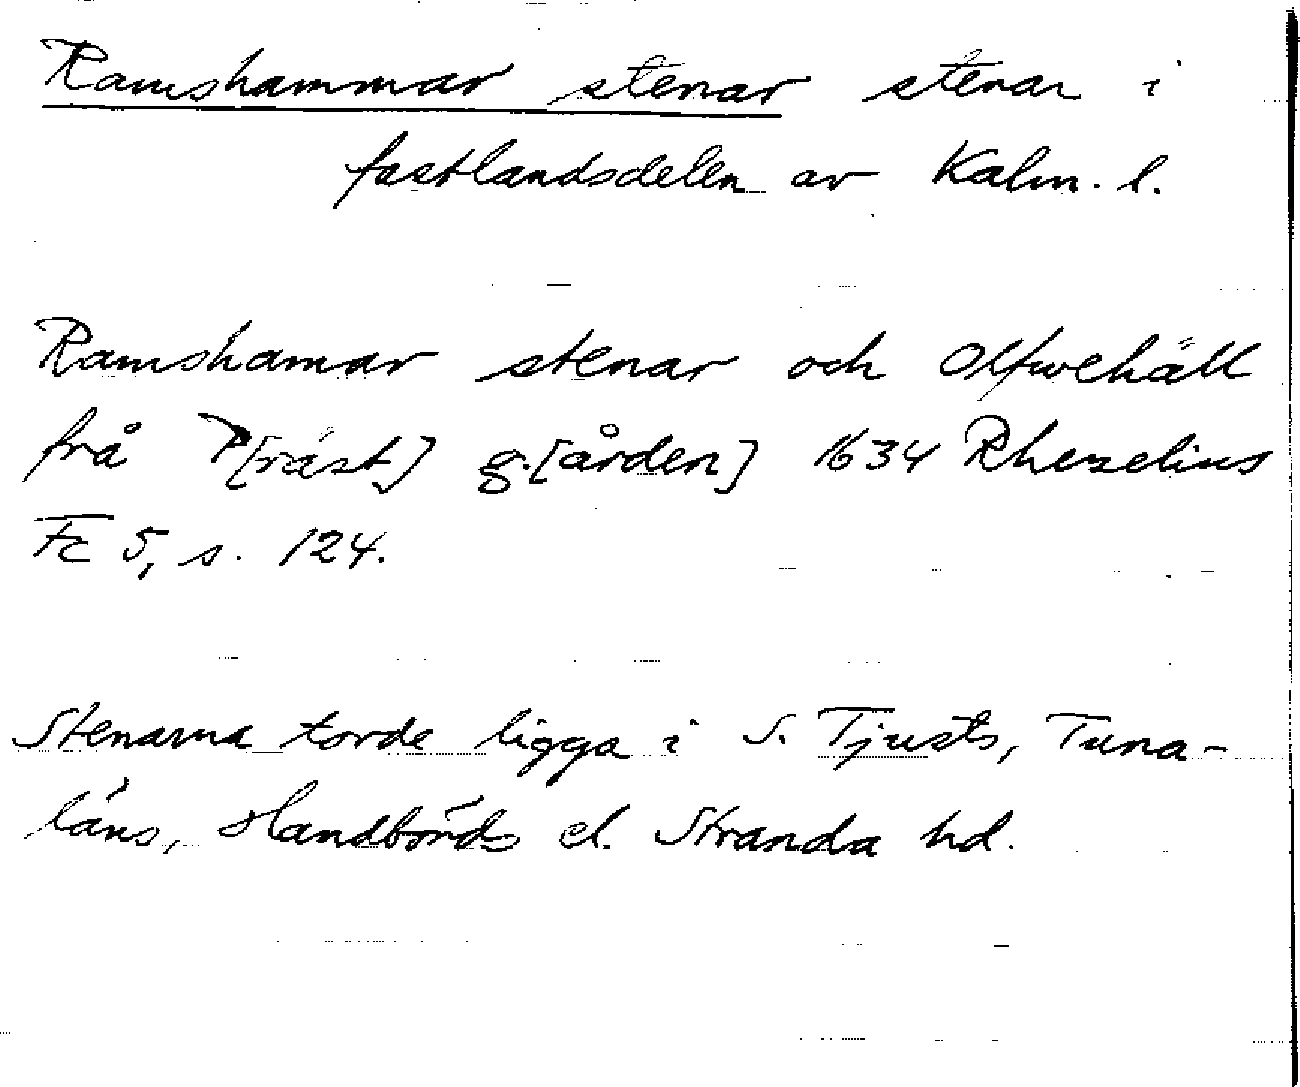 Ramshammar stenar stenar i
fastlandsdelen av Kalm. l.
Ramshamar stenar och Olfwehäll
frå P[räst] g.[ården] 1634 Rhezelius
Fc 5, s. 124.
Stenarna torde ligga i S. Tjusts, Tuna-
läns, Handbörds el. Stranda hd.